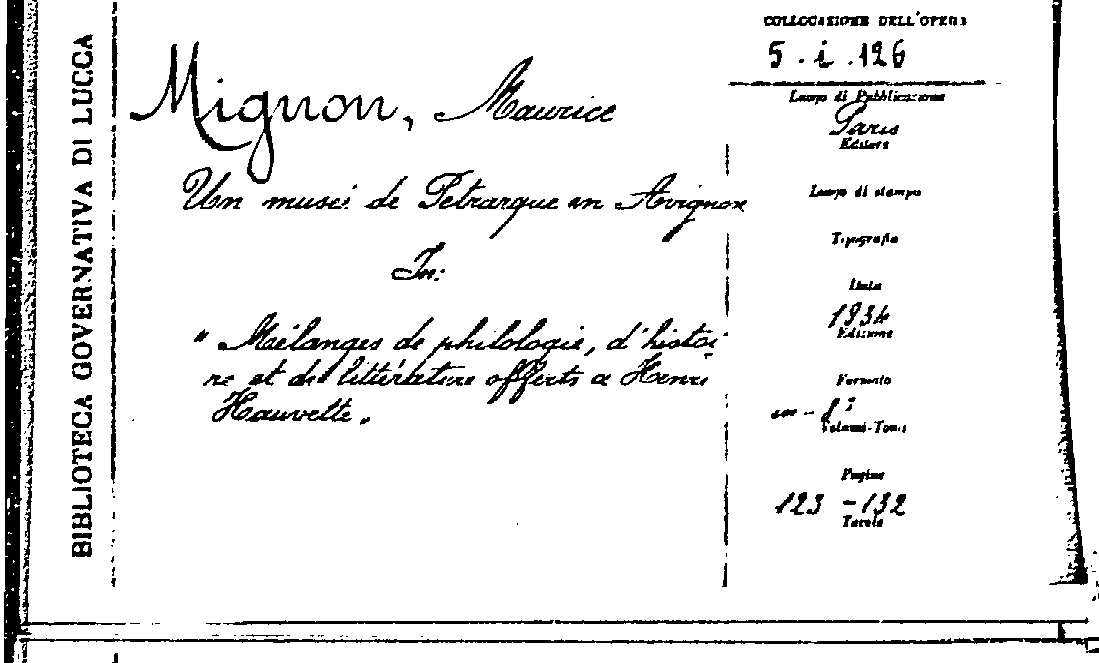 BIBLIOTECA GOVERNATIVA DI LUCCA
Mignon, Maurice
Un musée de Pétrarque en Avignon
In:
"Mélanges de philologie, d'histoi-
re et de littérature offerts a Henri
Hauvette.
COLLOCAZIONE DELL'OPERA
5.i.126
Luogo di Pubblicazione
Paris
Editore
Luogo di stampa
Tipografia
Data
1934
Edizione
Formato
in-8°
Volumi-Tomi
Pagine
123-132
Tavole